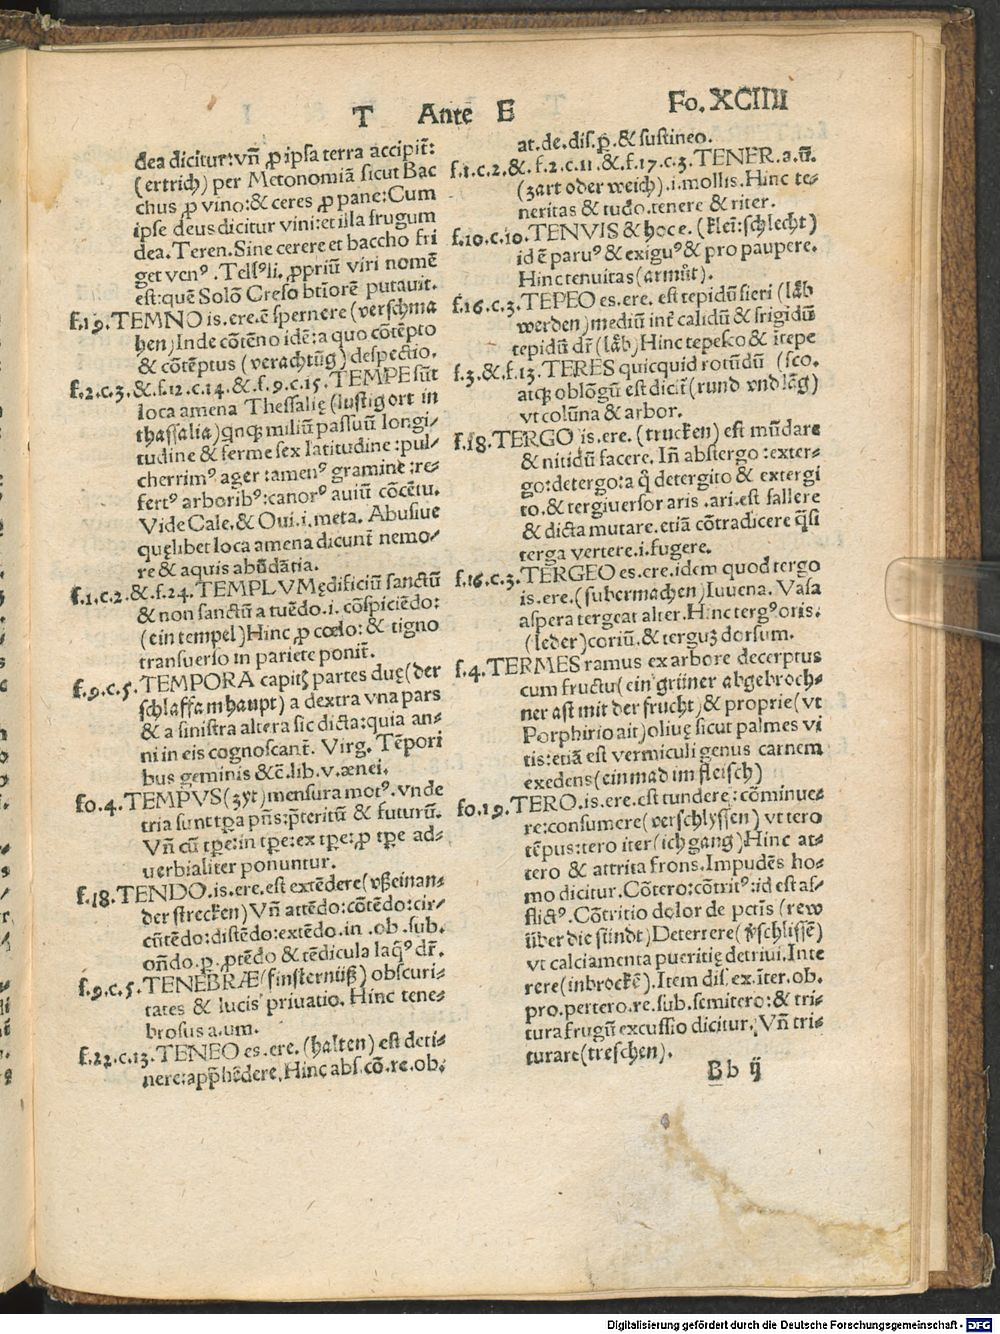 T Ante E Fo. XCIIII
dea dicitur: vn̄ ꝓ ipsa terra accipit̄:
(ertrich) per Metonomiā sicut Bac
chus ꝓ vino: & ceres ꝓ pane: Cum
ipse deus dicitur vini: et illa frugum
dea. Teren. Sine cerere et baccho fri
get venꝰ. Tellꝰli. ꝓpriū viri nomē
est: quē Solō Creso btiorē putauit.
f.19. TEMNO is. ere. ē spernere (verschma
hen) Inde cōtēno idē: a quo cōtēpto
& cōtēptus (verachtūg) despectio.
f.2.c.3. &. f.12.c.14. &. f.9.c.15. TEMPE sūt
loca amena Thessalię (lustig ort in
thassalia) qnqꝫ miliū passuū longi⸗
tudine & ferme sex latitudine: pul⸗
cherrimꝰ ager: amenꝰ gramine: re⸗
fertꝰ arboribꝰ: canorꝰ auiū cōcētu.
Vide Cale. & Oui. i. meta. Abusiue
quęlibet loca amena dicunt̄ nemo⸗
re & aquis abūdātia.
f.1.c.2. &. f.24. TEMPLVM ędificiū sanctū
& non sanctū a tuēdo. i. cōspiciēdo:
(ein tempel) Hinc ꝓ cœlo: & tigno
transuerso in pariete ponit̄.
f.9.c.5. TEMPORA capitꝭ partes duę (der
schlaff am haupt) a dextra vna pars
& a sinistra altera sic dicta: quia an⸗
ni in eis cognoscant̄. Virg. Tēpori
bus geminis &c̄. lib. v. ænei.
fo.4. TEMPVS (zyt) mensura motꝰ. vnde
tria sunt tꝑa pn̄s: p̄teritū & futurū.
Vn̄ cū tꝑe: in tꝑe: ex tꝑe: ꝓ tꝑe ad⸗
uerbialiter ponuntur.
f.18. TENDO. is. ere. est extēdere (vßeinan⸗
der strecken) Vn̄ attēdo: cōtēdo: cir⸗
cūtēdo: distēdo: extēdo. in. ob. sub.
on̄do. p. ꝓtēdo & tēdicula laqꝰ dr̄.
f.9.c.5. TENEBRÆ (finsternüß) obscuri⸗
tates & lucis priuatio. Hinc tene⸗
brosus a. um.
f.22.c.13. TENEO es. ere. (halten) est deti⸗
nere: app̄hēdere. Hinc abs. cō. re. ob.
at. de. dis. ꝑ. & sustineo.
f.1.c.2. &. f.2.c.11. &. f.17.c.3. TENER. a. ū.
(zart oder weich). i. mollis. Hinc te⸗
neritas & tudo. tenere & riter.
f.10.c.10. TENVIS & hoc e. (kleī: schlecht)
id ē paruꝰ & exiguꝰ & pro paupere.
Hinc tenuitas (armūt).
f.16.c.3. TEPEO es. ere. est tepidū fieri (låb
werden) mediū int̄ calidū & frigidū
tepidū dr̄ (låb) Hinc tepesco & itepe
f.3. &. f.13. TERES quicquid rotūdū (sco.
atqꝫ oblōgū est dicit̄ (rund vnd lāg)
vt colūna & arbor.
f.18. TERGO is. ere. (trucken) est mūdare
& nitidū facere. In̄ abstergo: exter⸗
go: detergo: a q̄ detergito & extergi
to. & tergiuersor aris. ari. est fallere
& dicta mutare. etiā cōtradicere q̄si
terga vertere. i. fugere.
f.16.c.3. TERGEO es. ere. idem quod tergo
is. ere. (subermachen) Iuuena. Vasa
aspera tergeat alter. Hinc tergꝰ oris.
(leder) coriū. & terguꝫ dorsum.
f.4. TERMES ramus ex arbore decerptus
cum fructu (ein grüner abgebroch⸗
ner ast mit der frucht) & proprie (vt
Porphirio ait) oliuę sicut palmes vi
tis: etiā est vermiculi genus carnem
exedens (ein mad im fleisch)
fo.19. TERO. is. ere. est tundere: cōminue⸗
re: consumere (verschlyssen) vt tero
tēpus: tero iter (ich gang) Hinc at⸗
tero & attrita frons. Impudēs ho⸗
mo dicitur. Cōtero: cōtritꝰ: id est af⸗
flictꝰ. Cōtritio dolor de pctīs (rew
über die sündt) Deterrere (v̄schlissē)
vt calciamenta pueritię detriui. Inte
rere (inbrockē). Item dis. ex. īter. ob.
pro. pertero. re. sub. semitero: & tri⸗
tura frugū excussio dicitur. Vn̄ tri⸗
turare (treschen).
Bb ij
Digitalisierung gefördert durch die Deutsche Forschungsgemeinschaft - DFG